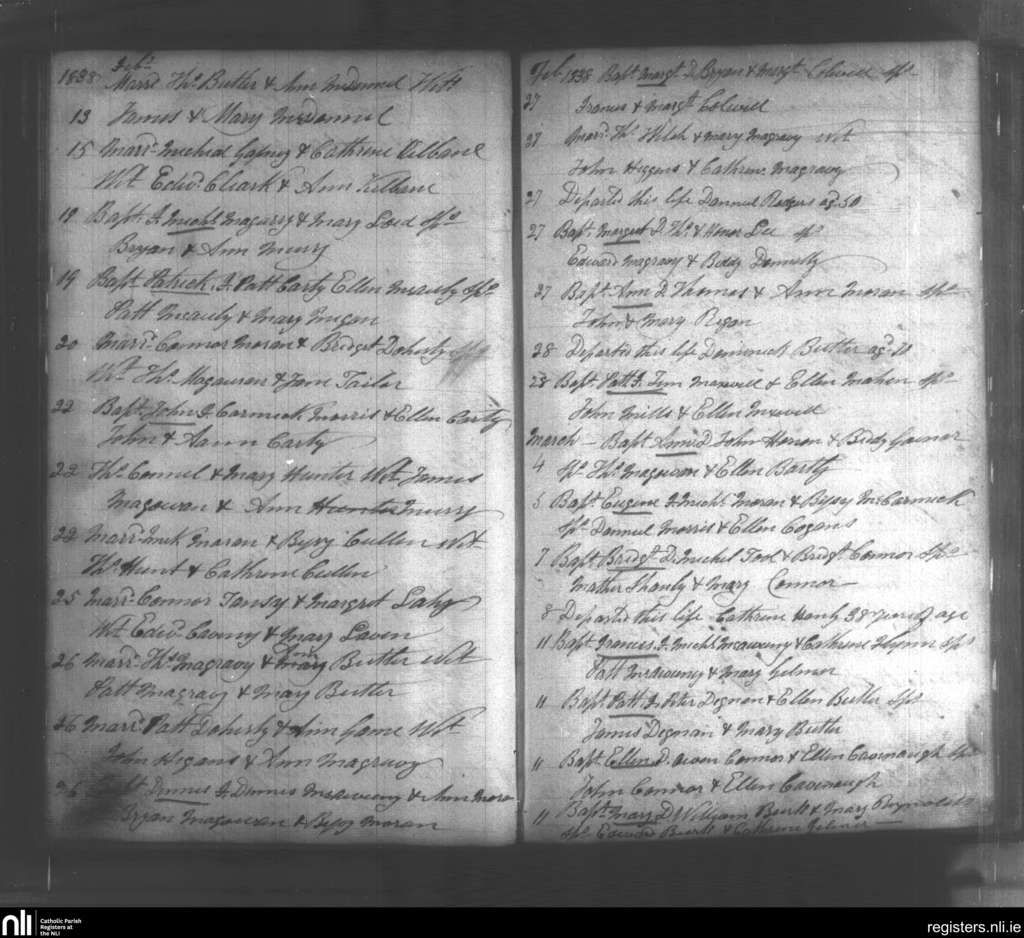 1838 Feby
Marrd. Thos. Butler & Ann McDonnel Witt
13 James & Mary McDonnel
15 Marrd. Micheal Gafney & Cathrine Kilbane
Wt. Edwd. Cleark & Ann Kilbane
18 Bapt. J. Michl. Magarry & Mary Loed Sps
Bryan & Ann Murry
19 Bapt. Patrick. J. Patt Carty Ellen McAuly Sps
Patt McAuly & Mary Mugan
20 Marrd. Connor Moran & Bridget Doherty
Wt. Thos. Magauran & Jam Tailor
22 Bapt. John J. Carmick Morris & Ellen Carty
John & Aann Carty
22 Thos. Connel & Mary Hunter Wt. James
Magauran & Ann Hunter Murry
22 Marrd. Mick Moran & Bysy Cullen Wt
Thos. Hunt & Cathrine Cullen
25 Marrd. Connor Tansy & Margret Lahy
Wt. Edwd. Caveny & Mary Laven
26 Marrd. Thos. Magravy & Mary Butler Wt
Patt Magravy & Mary Butler
26 Marrd. Patt Doherty & Ann Game Wt
John Higans & Ann Magravy
26 Bapt. Dennis J. Dennis McAweeny & Ann Mora
Bryan Magauran & Bysy Moran
Feb. 1838 Bapt. Margt. D. Bryan & Margt. Colwell Sps
27 Francis & Margt. Colwell
27 Marrd. Thos. Wilsh & Mary Magravy Wt
John Higgins & Cathrine Magravy
27 Departed this life Danniel Rodgers ag. 50
27 Bapt. Margret D. Thos. & Honor Lee Sps
Edward Magravy & Biddy Donnelly
27 Bapt. Ann D. Thomas & Ann Moran Sps
John & Mary Regan
28 Departed this life Dominick Butler ag.
28 Bapt. Patt J. Tim Maxwell & Ellen Mahon Sps
John Mills & Ellen Mxwell
March - Bapt. Ann D John Honon & Bidy Gaenor
4 Sps. Thos. Magauran & Ellen Bartly
5 Bapt. Eugene J. Michl. Moran & Bysy McCarmick
Sps. Danniel Morris & Ellen Cogans
7 Bapt. Bridgt. D. Michel Tool & Bridgt. Connor Sps
Mather Shanly & Mary Connor
8 Departed this life Cathrine Hanly 38 years of age
11 Bapt. Francis J. Michl. McAweeny & Cathrine Flynn Sps
Patt McAweeny & Mary Gilmor
11 Bapt. Patt J. Peter Dignan & Ellen Butler Sps
James Dignan & Mary Butler
11 Bapt. Ellen D. Owen Connor & Ellen Cavenaugh Sps
John Connor & Ellen Cavenaugh
11 Bapt. Mary D William Beirk & Mary Reynolds
Sps. Edward Beirk & Cathrene Gilmor
nli
Catholic Parish
Registers at
the NLI
registers.nli.ie
© National Library of Ireland